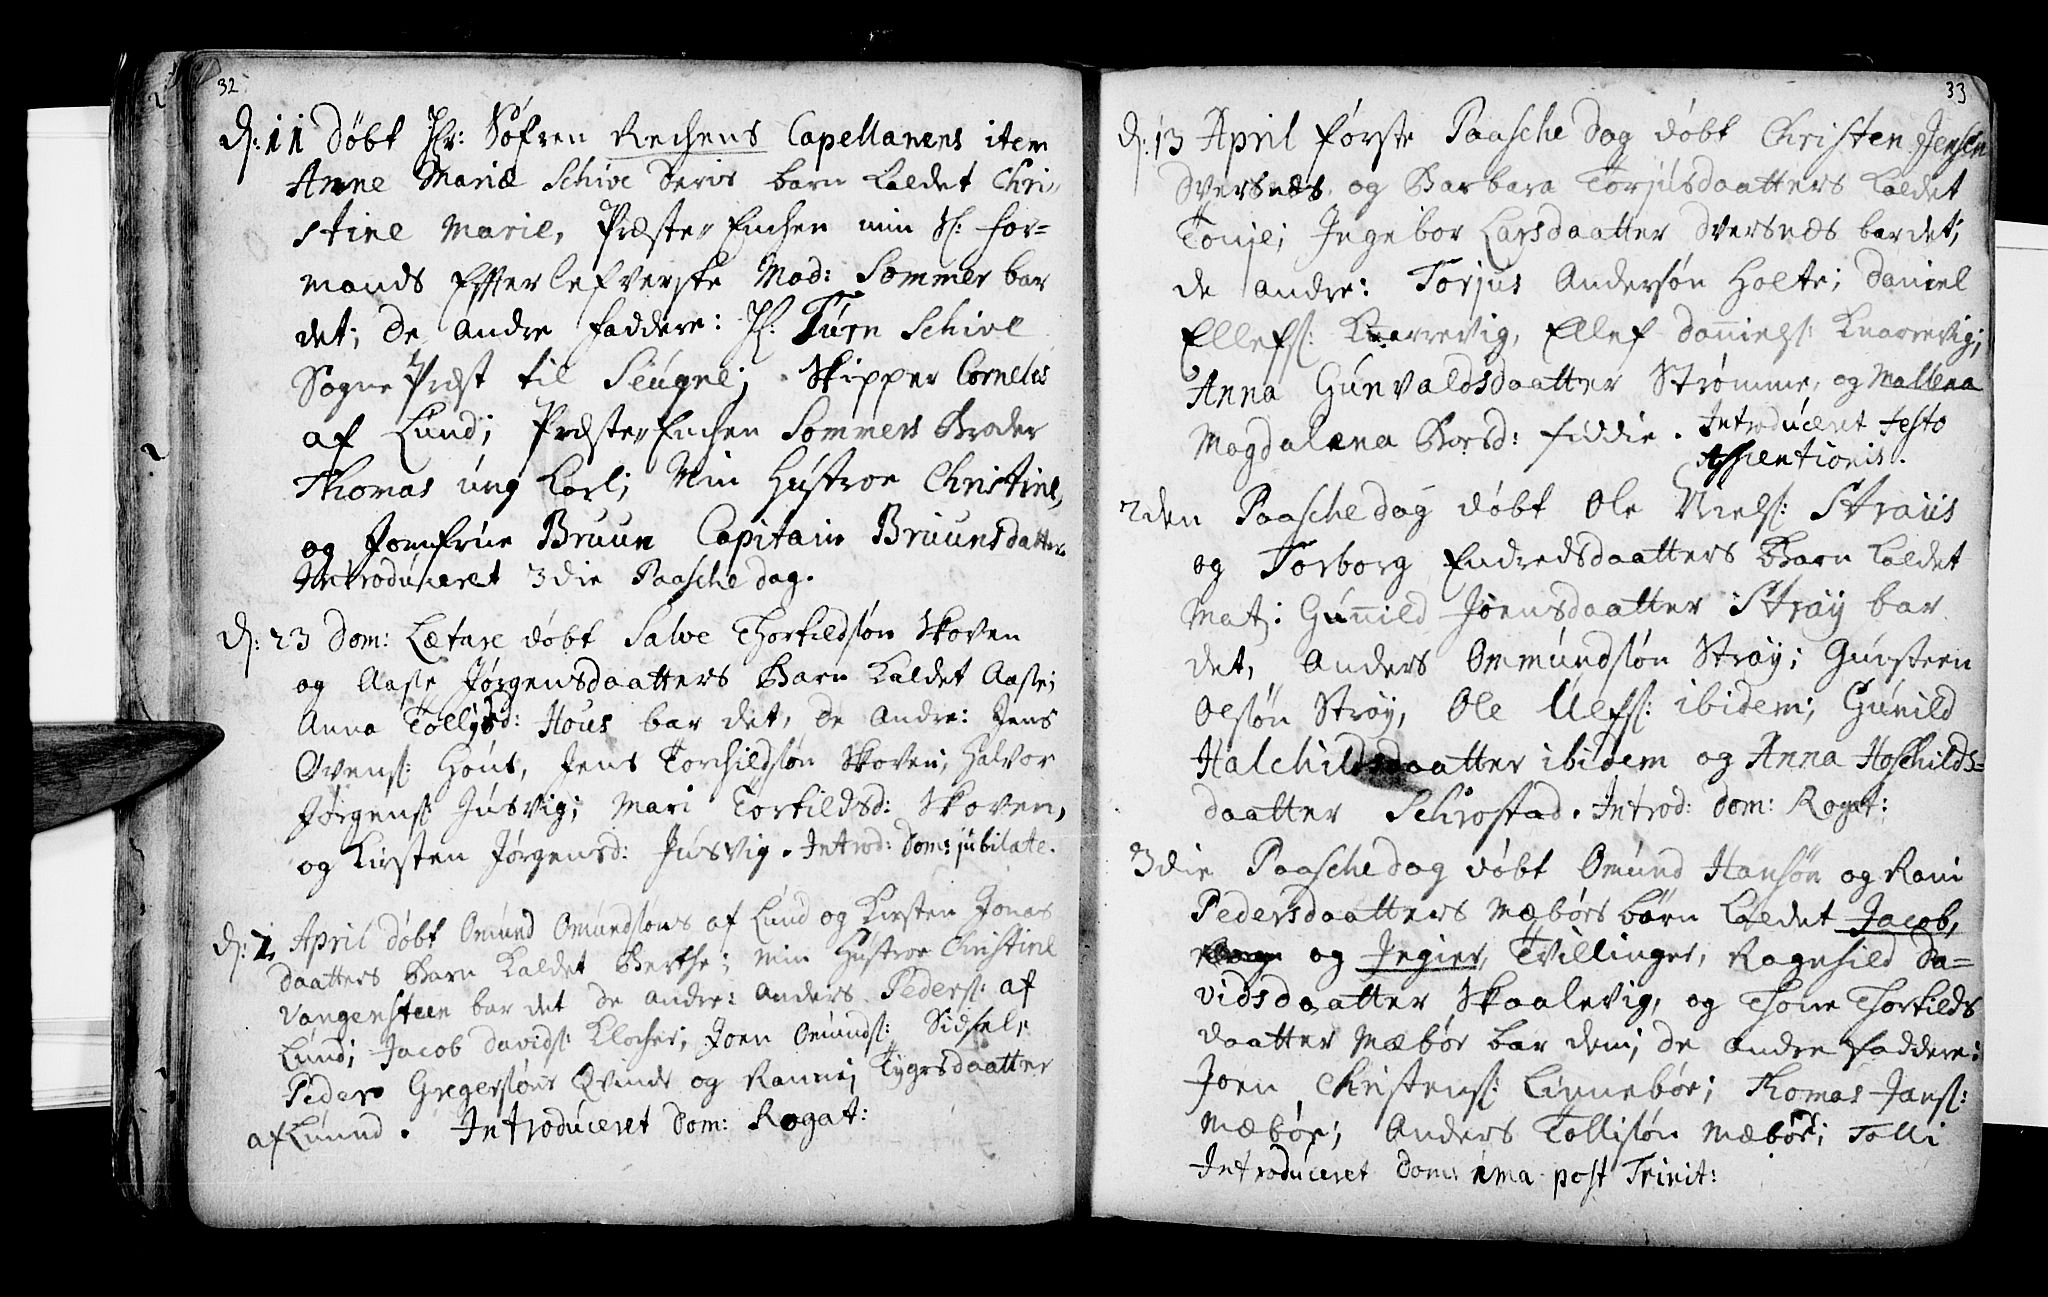 32
D: 11 Døbt Hr: Søfren Rechens Capellanens item
Anne Mariæ Schive Deris barn kaldet Chri-
stine Marie, Præste-Enchen min Sl: for=
mands Efterlefverske Mad: Sommer bar
det; de andre faddere: Hr: Türn Schive
Sogne Præst til Seügne; Skipper Cornelis
af Lund; Præste-Enchen Sommers Broder
Thomas ung Karl; Min Hustroe Christine,
og Jomfrue Bruun Capitain Bruunsdatter
Introduceret 3die Paasche dag.
D: 23 Dom: Lætare døbt Salve Thorkildsøn Skoven
og Aase Jørgensdaatters Barn kaldet Aase;
Anna Tollijsd: Hous bar det, de andre: Jens
Ovens: Hous, Jens Torchildsøn Skoven, Halvor
Jørgens: Jusvig; Mari Torkildsd: Skoven,
og Kirsten Jørgensd: Jusvig. Introd: Dom: jubilate.
D: 2 April døbt Omund Omundsøns af Lund og Kirsten Jonas
daatters Barn kaldet Berthe; min Hustroe Christine
Vangensteen bar det de andre: Anders Peders: af
Lund; Jacob Davids: Klocher; Joen Omunds: Sidsel,
Peder Gregersøns Qvinde og Ranni Tygesdaatter
af Luund. Introduceret Dom: Rogat:
33
D: 13 April første Paasche dag døbt Christen Jensen
Dversnes og Barbara Torjusdaatters kaldet
Tonje; Ingebor Larsdaatter Dversnes bar det;
de andre: Torjus Andersøn Holte; Daniel
Ellefs: Knarrevig, Ellef Daniels: Knarrevig;
Anna Gunvaldsdaatter Strømme, og Mallena
Magdalena Borsd: Fiddie. Introduceret Festo
Ascentionis.
2den Paasche dag døbt Ole Niels: Straiis
og Torborg Endredsdaatters Barn kaldet
Mat: Gunild Joensdaatter Straÿ bar
det, Anders Ommundsøn Straÿ; Gunsteen
Olsøn Straÿ, Ole Ulefs: ibidem; Gunild
Halchildsdaatter ibidem og Anna Aschilds=
daatter Schrostad. Introd: Dom: Rogat:
3die Paasche dag døbt Omund Hansøn og Rani
Pedersdaatters Mæbørs børn kaldet Jacob,
og Jegier, Tvillinger, Ragnhild Da=
vidsdaatter Skaalevig, og Thone Thorkilds
daatter Mæbør bar dem; de andre Faddere:
Joen Christens: Linnebør; Thomas Jans:
Mæbør; Anders Tollisøn Mæbør; Tolli
Introduceret Dom: 1ma post Trinit: